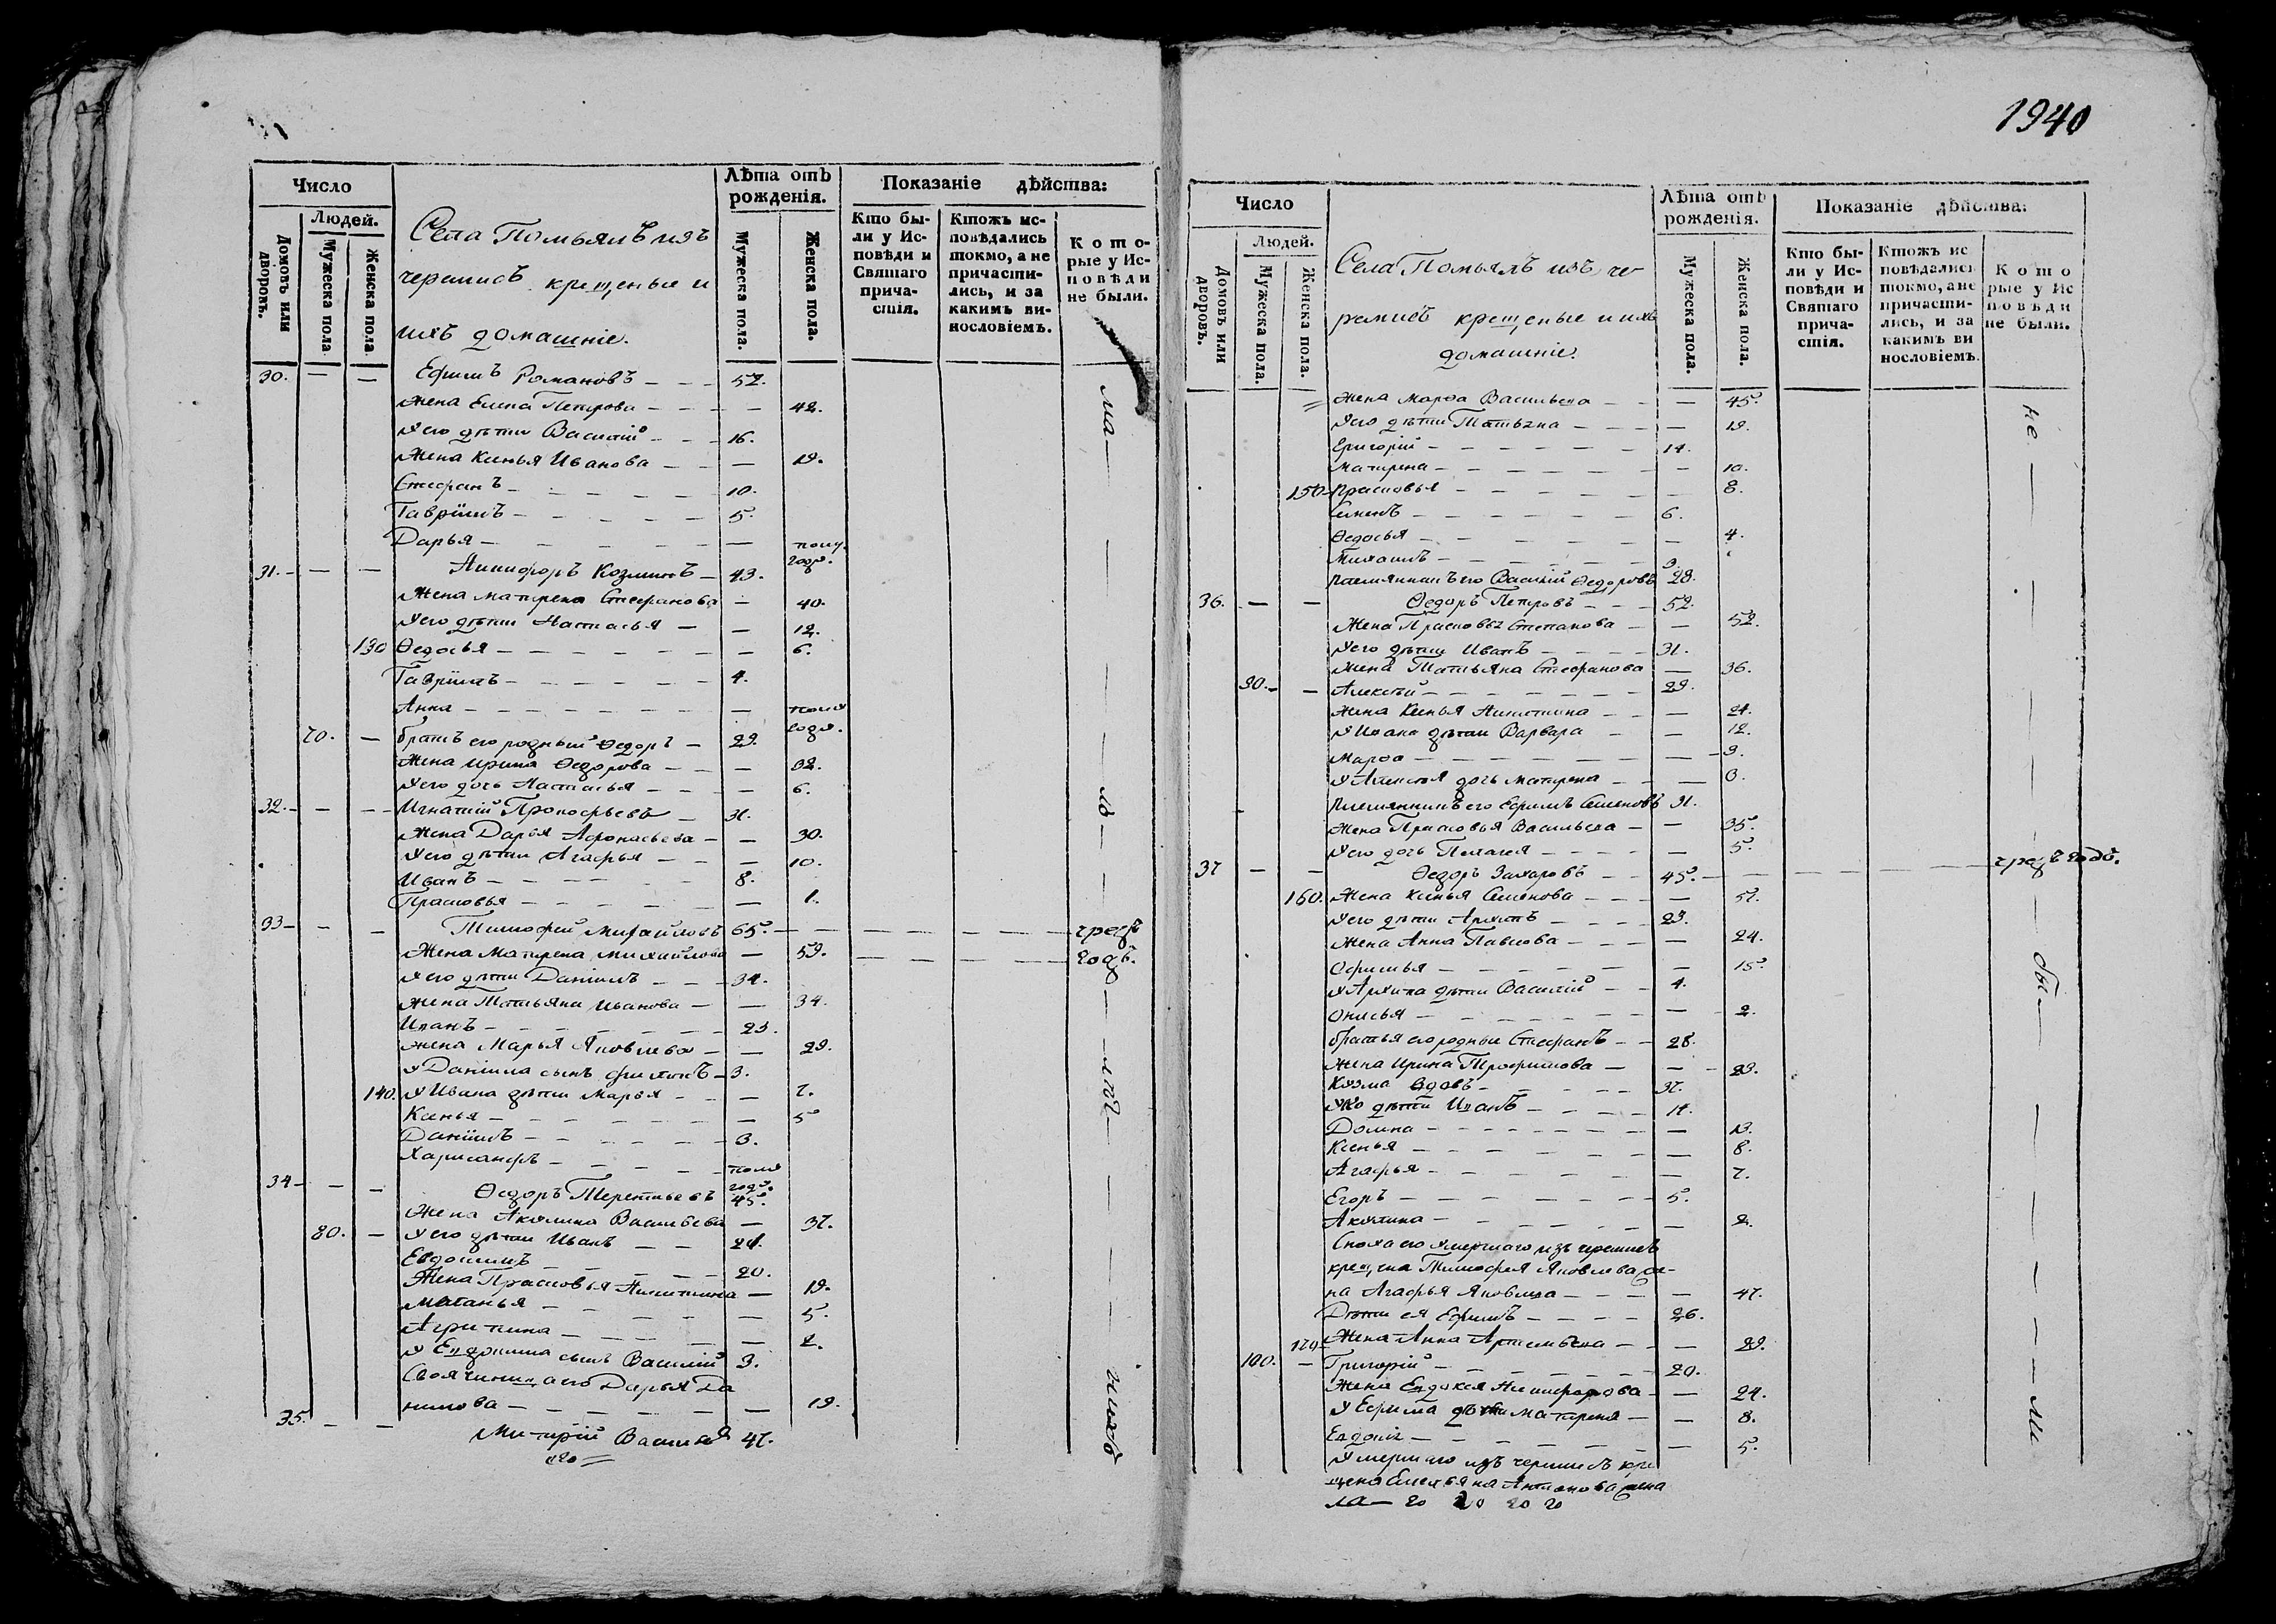 Число
Людей.
Домовъ или дворовъ.
Мужеска пола
Женска пола.
Села Помьялъ изъ
черемисъ крещеные и
ихъ домашніе.
Лѣта отъ рожденія.
Мужеска пола.
Женска пола.
Показаніе дѣйства:
Кто бы-
ли у Ис-
повѣди и
Святаго
прича-
стія.
Ктожъ ис-
повѣдались
токмо, а не
причасти-
лись, и за
какимъ ви-
нословіемъ.
К о т о-
рые у Ис-
п о в ѣ д и
не были.
30. — — Ефимъ Романовъ — — — 52.
Жена Елена Петрова — — — — 42.
У его дѣти Василій — — — 16.
Жена Ксенья Иванова — — — 19.
Стефанъ — — — — — 10.
Гаврiилъ — — — — — 5.
Дарья — — — — — — полу.
году.
31. — — — Никифоръ Козминъ — 43.
Жена Матрена Стефанова — 40.
У его дѣти Настасья — — 12.
130 Ѳедосья — — — — — — 6.
Гаврiилъ — — — — — 4.
Анна — — — — — — полу
году.
70. — братъ его родный Ѳедоръ — 29.
Жена Ирина Ѳедорова — — — 32.
У его дочь Настасья — — — 6.
32. — — — Игнатій Прокофьевъ — 31.
Жена Дарья Афонасьева — — 30.
У его дѣти Агафья — — — 10.
Иванъ — — — — — 8.
Прасковья — — — — — — 1.
33 — — — Тимофей Михайловъ 65. — — — — — — чрезъ
Жена Матрена Михайлова — 59. — — — — — годъ.
У его дѣти Данiилъ — — — 34.
Жена Татьяна Иванова — — 34.
Иванъ — — — — — — 29.
Жена Марья Яковлева — — 29.
У Данiила сынъ Филипъ — 3.
140. У Ивана дѣти Марья — — — 7.
Ксенья — — — — — — — 5
Данiилъ — — — — — — 3.
Харисанфъ — — — — — полу
году.
34 — — — Ѳедоръ Терентьевъ 45.
Жена Акулина Васильева — 37.
80. — У его дѣти Иванъ — — 24.
Евдокимъ — — — — — 20.
Жена Прасковья Никитина — 19.
Маланья — — — — — 5.
Агрипина — — — — — 2.
У Евдокима сынъ Василій 3.
Своячиница его Дарья Да
нилова — — — — — — 19.
35. — — Митрій Васильев 47.
1940
Число
Людей.
Домовъ или дворовъ.
Мужеска пола.
Женска пола.
Села Помьялъ изъ че-
ремисъ крещеные и ихъ
домашніе.
Лѣта отъ рожденія.
Мужеска пола.
Женска пола.
Показаніе дѣйства:
Кто бы-
ли у Ис-
повѣди и
Святаго
прича-
стія.
Ктожъ ис
повѣдались
токмо, а не
причасти-
лись, и за
какимъ ви
нословіемъ.
К о т о
рые у Ис
п о в ѣ д и
не были.
Жена Марѳа Васильева — — — 45.
У его дѣти Татьяна — — — — 19.
Григорій — — — — — — 14.
Матрена — — — — — — — 10.
150 Прасковья — — — — — — 8.
Семенъ — — — — — — — 6.
Ѳедосья — — — — — — — 4.
Михаилъ — — — — — — 3.
племянникъ его Василій Ѳедоровъ 28.
36. — — Ѳедоръ Петровъ — — — 52.
Жена Прасковья Степанова — — 52.
У его дѣти Иванъ — — — — 31.
Жена Татьяна Стефанова — 36.
90. — — Алексѣй — — — — — — 29.
Жена Ксенья Никитина — — — 24.
У Ивана дѣти Варвара — — 12.
Марѳа — — — — — — — 9.
У Алексѣя дочь Матрена — — — 3.
племянникъ его Ефимъ Семеновъ 31.
Жена Прасковья Васильева — — 35.
У его дочь Пелагея — — — — 5.
37 — — Ѳедоръ Захаровъ — — 45. — — — — — — чрезъ годъ.
160. Жена Ксенья Семенова — — — — 51.
У его дѣти Архипъ — — — — 23.
Жена Анна Павлова — — — — 24.
Офимья — — — — — — — 15.
У Архипа дѣти Василій — — 4.
Онисья — — — — — — — 2.
братья его родные Стефанъ — — 28.
Жена Ирина Трофимова — — — 29.
Козма вдовъ — — — — — 37.
У его дѣти Иванъ — — — — 14.
Домна — — — — — — — — 13.
Ксенья — — — — — — — 8.
Агафья — — — — — — — 7.
Егоръ — — — — — — — 5.
Акулина — — — — — — — 2.
Сноха его умершаго изъ черемисъ
крещена Тимофея Яковлева же-
на Агафья Яковлева — — — — 47.
Дѣти ея Ефимъ — — — — 26.
170 Жена Анна Артемьева — — — 29.
100. — Григорій — — — — — — 20.
Жена Евдокея Никифорова — — 24.
У Ефима дѣти Матрена — — 8.
Евдокія — — — — — — — 5.
Умершаго изъ черемисъ кре
щена Емельяна Антонова жена
не — бы — ли